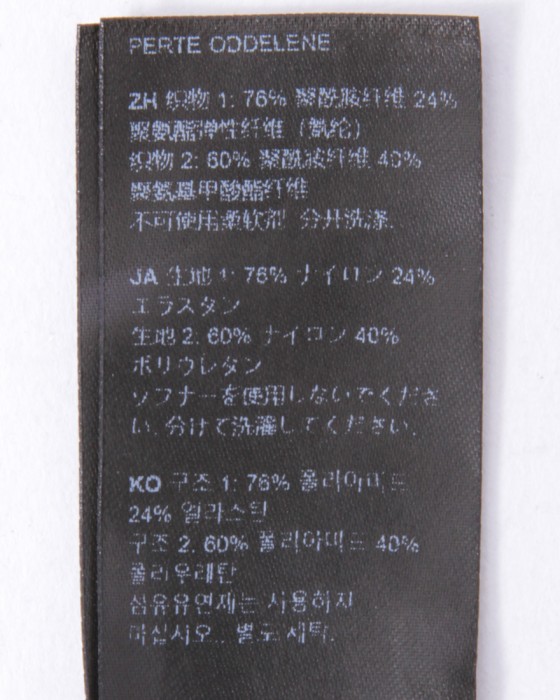 PERTE ODDELENE
ZH 织物 1: 76% 聚酰胺纤维 24%
聚氨酯弹性纤维（氨纶）
织物 2: 60% 聚酰胺纤维 40%
聚氨基甲酸酯纤维
不可使用柔软剂 分开洗涤.
JA 生地 1: 76% ナイロン 24%
エラスタン
生地 2: 60% ナイロン 40%
ポリウレタン
ソフナーを使用しないでくださ
い. 分けて洗濯してください.
KO 구조 1: 76% 폴리아미드
24% 엘라스틴
구조 2: 60% 폴리아미드 40%
폴리우레탄
섬유유연제는 사용하지
마십시오... 별도 세탁.